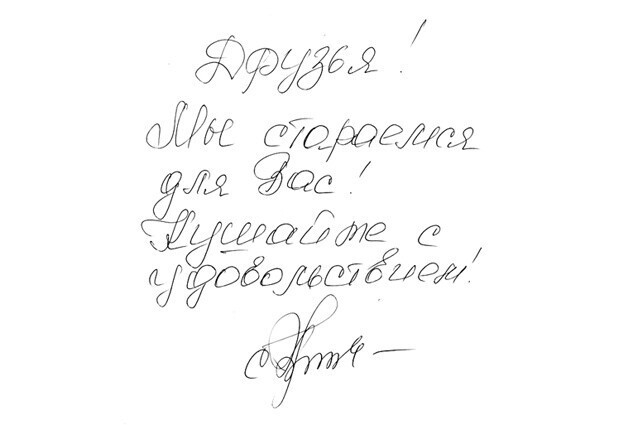 Друзья!
Мы стараемся
для Вас!
Кушайте с
удовольствием!